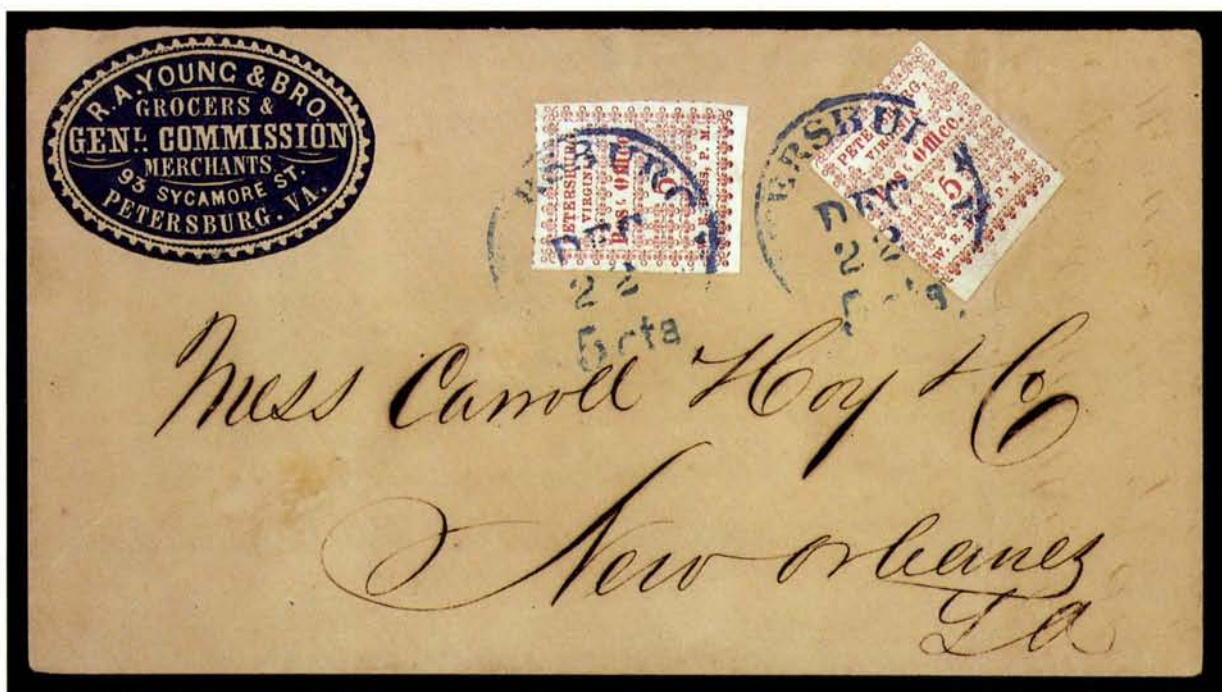 R. A. YOUNG & BRO
GROCERS &
GENL. COMMISSION
MERCHANTS.
93 SYCAMORE ST.
PETERSBURG. VA.
PETERSBURG
VIRGINIA
Post Office
5
PESS, P. M.
RSBURG
DEC
22
5 cts
PETE
VIRG
Office.
5
W. E. P. M.
ERSBU
DEC
2
Mess Carroll Hoy & Co
New Orleanes
La